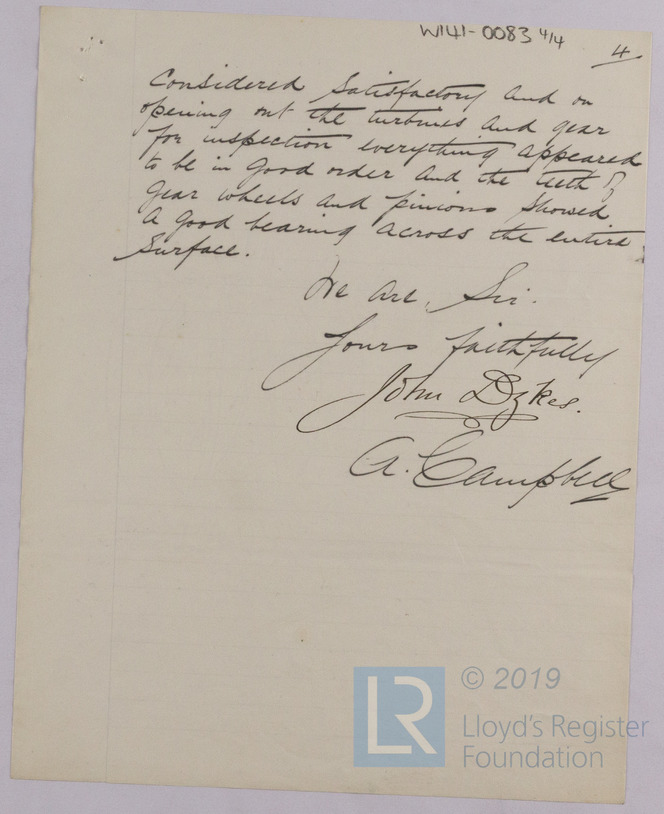 W141-0083 4/4
4
Considered Satisfactory and on
opening out the turbines and gear
for inspection everything appeared
to be in good order and the teeth of
gear wheels and pinions showed
a good bearing across the entire
surface.
We are, Sir.
Yours faithfully
John Dykes.
A. Campbell
LR
© 2019
Lloyd's Register
Foundation